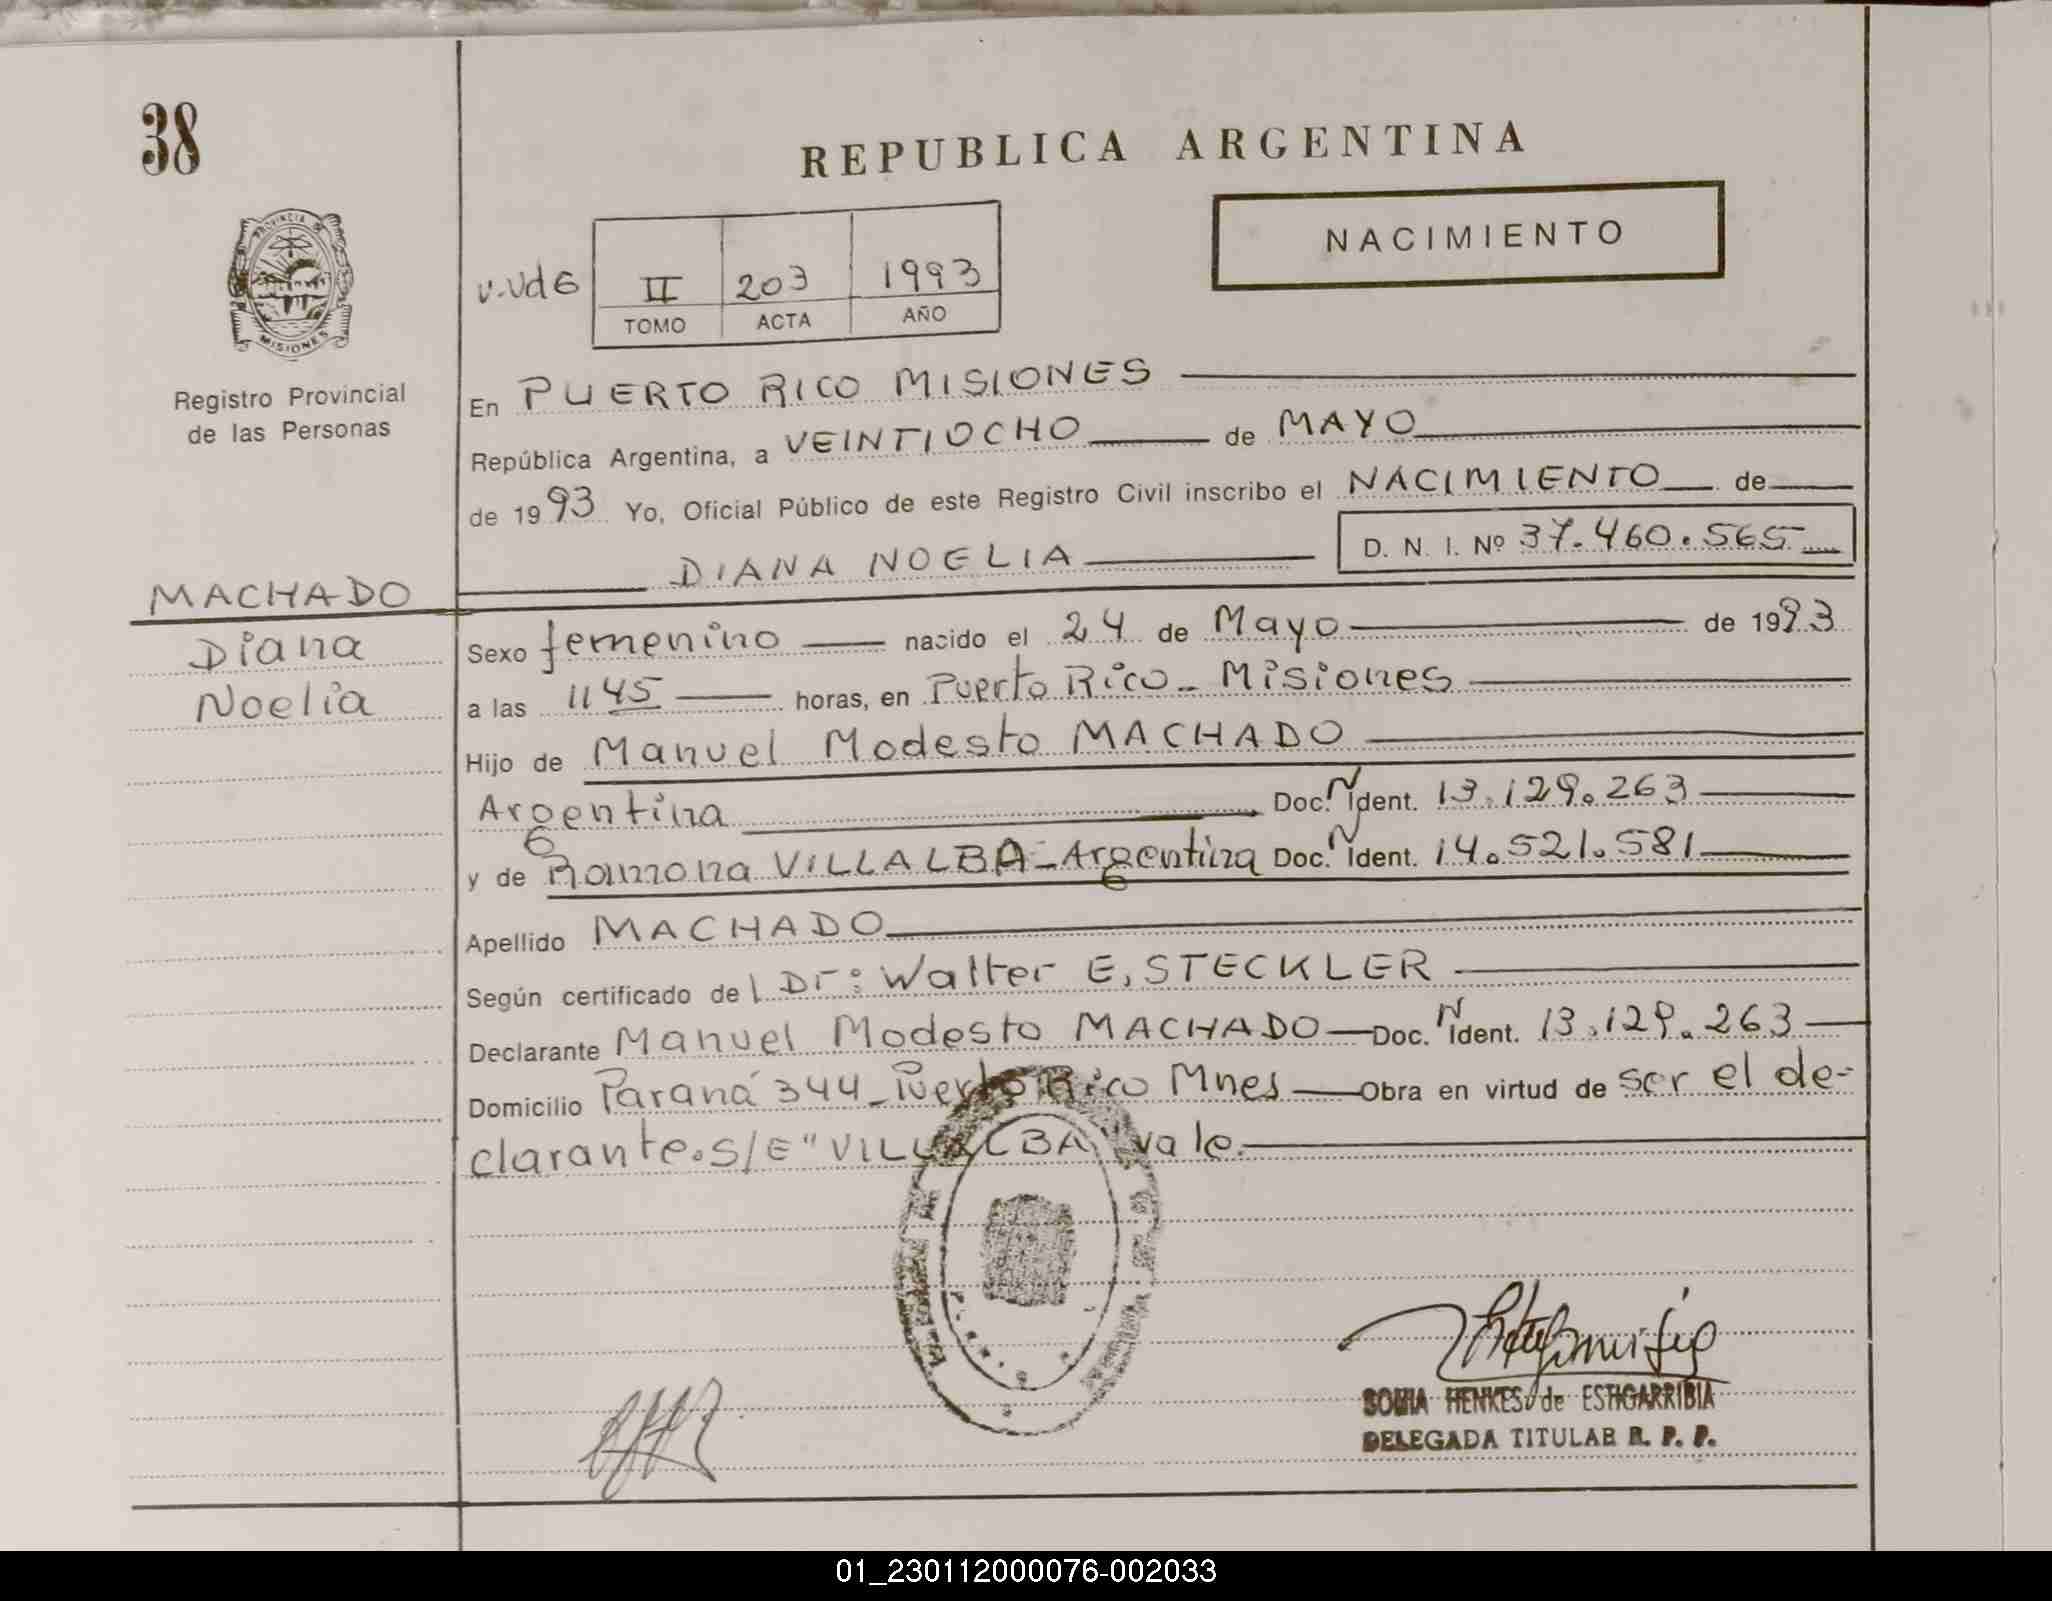 38
REPUBLICA ARGENTINA
NACIMIENTO
PROVINCIA DE
MISIONES
Registro Provincial
de las Personas
II 203 1993
TOMO ACTA AÑO
En PUERTO RICO MISIONES
República Argentina, a VEINTIOCHO de MAYO
de 1993 Yo, Oficial Público de este Registro Civil inscribo el NACIMIENTO de
DIANA NOELIA D. N. I. Nº 37.460.565
MACHADO
Diana
Noelia
Sexo femenino nacido el 24 de Mayo de 1993
a las 11 45 horas, en Puerto Rico - Misiones
Hijo de Manuel Modesto MACHADO
Argentina Doc. N Ident. 13.129.263
y de Ramona VILLALBA - Argentina Doc. N Ident. 14.521.581
Apellido MACHADO
Según certificado del Dr: Walter E, STECKLER
Declarante Manuel Modesto MACHADO Doc. N Ident. 13.129.263
Domicilio Paraná 344 - Puerto Rico Mnes Obra en virtud de ser el de-
clarante. S/E "VILLALBA" vale.
SONIA HENKES de ESTIGARRIBIA
DELEGADA TITULAR R. P. P.
01_230112000076-002033